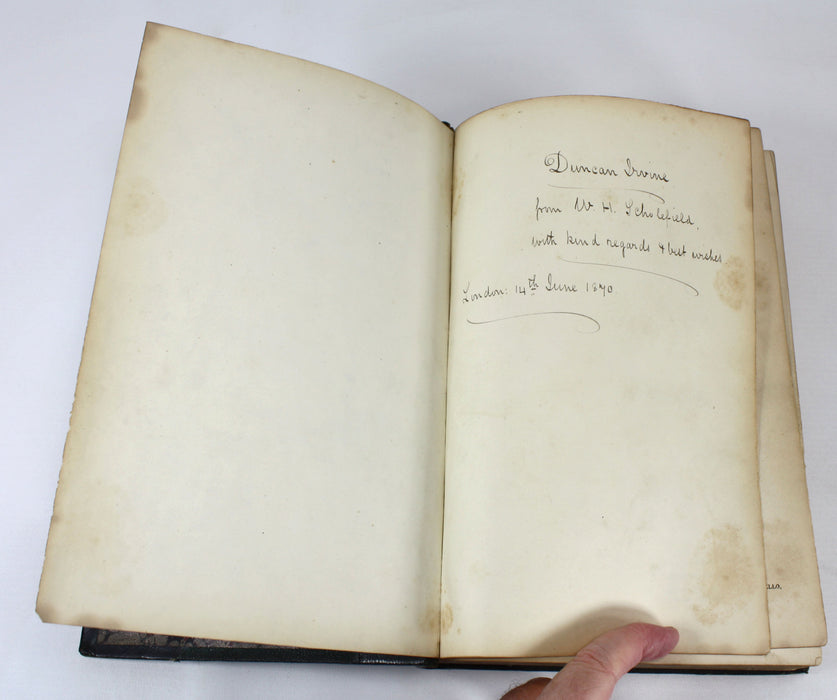 Duncan Irvine
from W. H. Scholefield.
with kind regards & best wishes.
London: 14th June 1870.